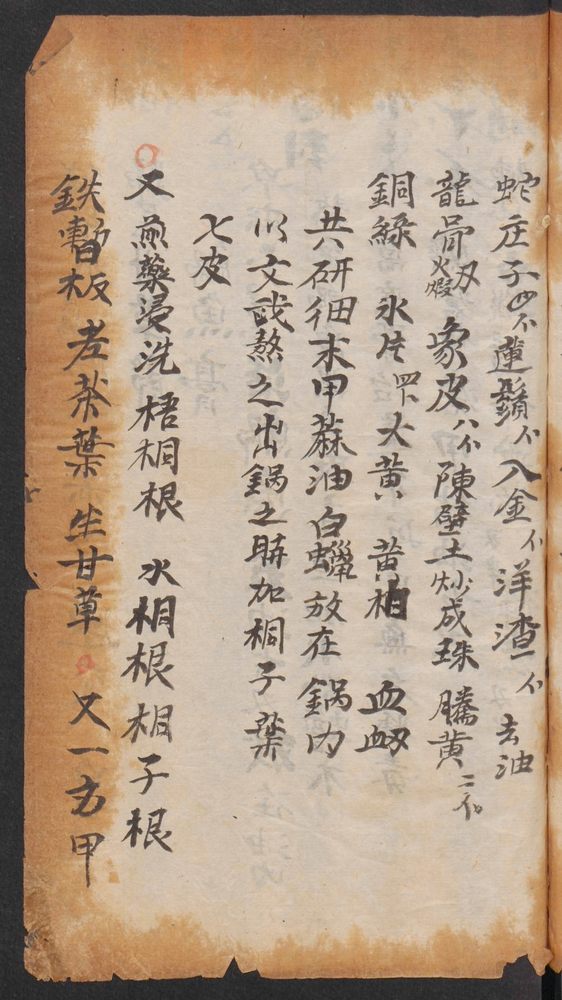 蛇庄子四个蓮鬚个入金个洋渣一个去油
龍骨火煅刄象皮八个陳壁土炒成珠騰黄二个
銅綠 氷片四下大黄 黄柏 血
共研细末甲蔴油白蠟放在鍋内
以文武熬之出鍋之時加桐子葉
七皮
又煎藥燙洗梧桐根 水桐根桐子根
鉄暫板老茶葉生甘草 又一方甲